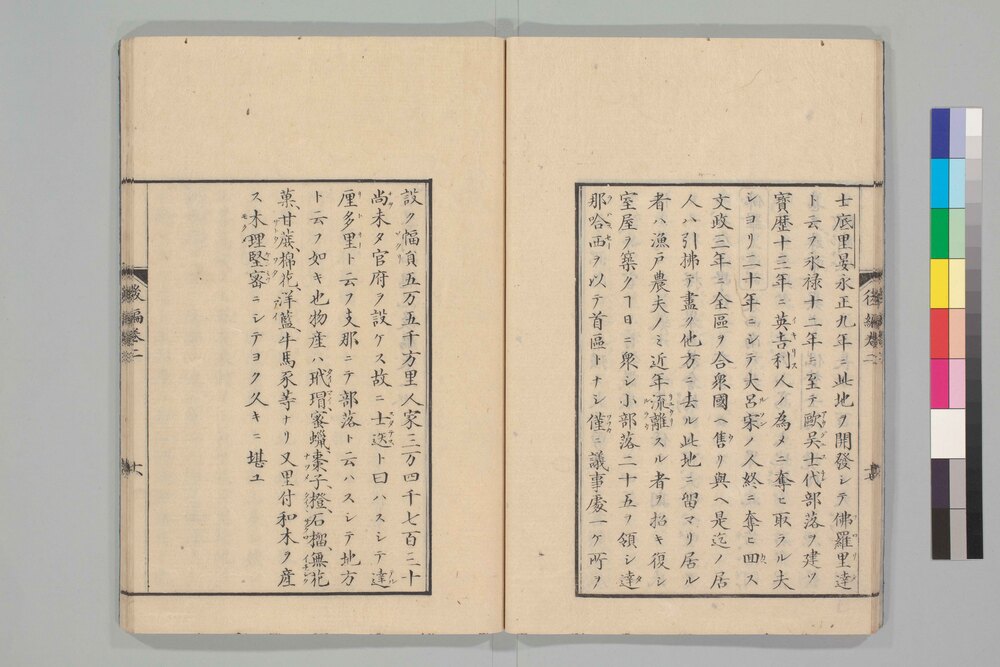 士底里晏永正九年ニ此地ヲ開發シテ佛羅里達
ト云フ永禄十二年ニ至テ歐呉士代部落ヲ建ツ
寶歴十三年ニ英吉利人ノ為メニ奪ヒ取ラル夫
ヨリ二十年ニシテ大呂宋ノ人終ニ奪ヒ回ス
文政三年ニ全區ヲ合衆國ヘ售リ與ヘ是迄ノ居
人ハ引拂テ盡ク他方ニ去ル此地ニ留マリ居ル
者ハ漁戸農夫ノミ近年流離スル者ヲ招キ復シ
室屋ヲ築クヿ日ニ衆シ小部落二十五ヲ領シ達
那哈西ヲ以テ首區トナシ僅ニ議事處一ケ所ヲ
後編卷二
設ク幅員五万五千方里人家三万四千七百三十
尚未タ官府ヲ設ケス故ニ士迭ト曰ハスシテ達
厘多里ト云フ支那ニテ部落ト云ハスシテ地方
ト云フ如キ也物産ハ玳瑁、蜜蠟、棗子、橙、石榴、無花
菓、甘蔗、棉花、洋籃、牛馬豕等ナリ又里付和木ヲ産
ス木理堅密ニシテヨク久キニ堪ユ
後編卷二